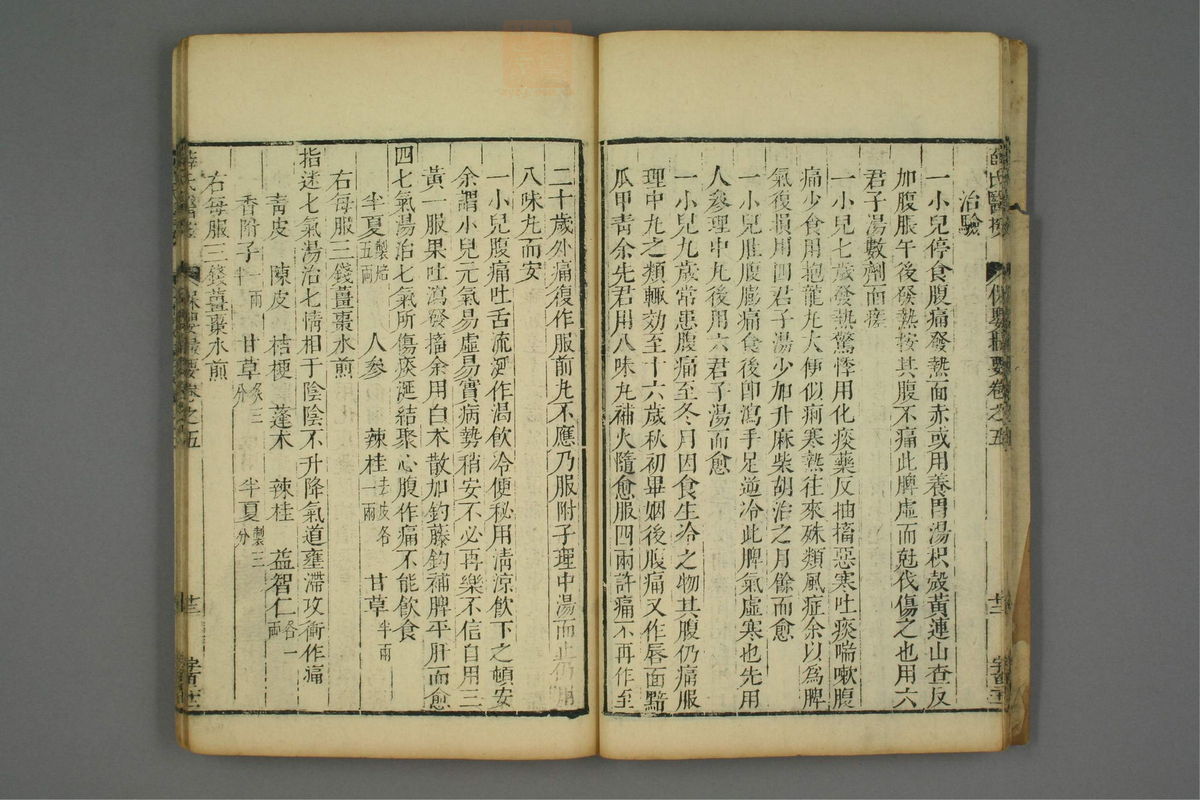 薛氏醫按 保嬰撮要卷之五
治驗
一小兒停食腹痛發熱面赤或用養胃湯枳殼黃連山查反
加腹脹午後發熱按其腹不痛此脾虛而尅伐傷之也用六
君子湯數劑而瘥
一小兒七歲發熱驚悸用化痰藥反抽搐惡寒吐痰喘嗽腹
痛少食用抱龍丸大便似痢寒熱往來殊類風症余以爲脾
氣復損用四君子湯少加升麻柴胡治之月餘而愈
一小兒肚腹膨痛食後卽瀉手足逆冷此脾氣虛寒也先用
人參理中丸後用六君子湯而愈
一小兒九歲常患腹痛至冬月因食生冷之物其腹仍痛服
理中丸之類輒効至十六歲秋初畢姻後腹痛又作唇面黯
瓜甲青余先君用八味丸補火隨愈服四兩許痛不再作至
二十歲外痛復作服前丸不應乃服附子理中湯而止仍用
八味丸而安
一小兒腹痛吐舌流涎作渴飲冷便秘用清涼飲下之頓安
余謂小兒元氣易虛易實病勢稍安不必再藥不信自用三
黃一服果吐瀉發搐余用白朮散加鈎藤鈎補脾平肝而愈
四七氣湯治七氣所傷痰涎結聚心腹作痛不能飲食
半夏製焙五兩 人參 辣桂去皮各一兩 甘草半兩
右每服三錢薑棗水煎
指迷七氣湯治七情相干陰陰不升降氣道壅滯攻衝作痛
青皮 陳皮 桔梗 蓬朮 辣桂 益智仁各一兩
香附子一兩半 甘草炙三分 半夏製三分
右每服三錢薑棗水煎
薛氏醫按 保嬰撮要卷之五